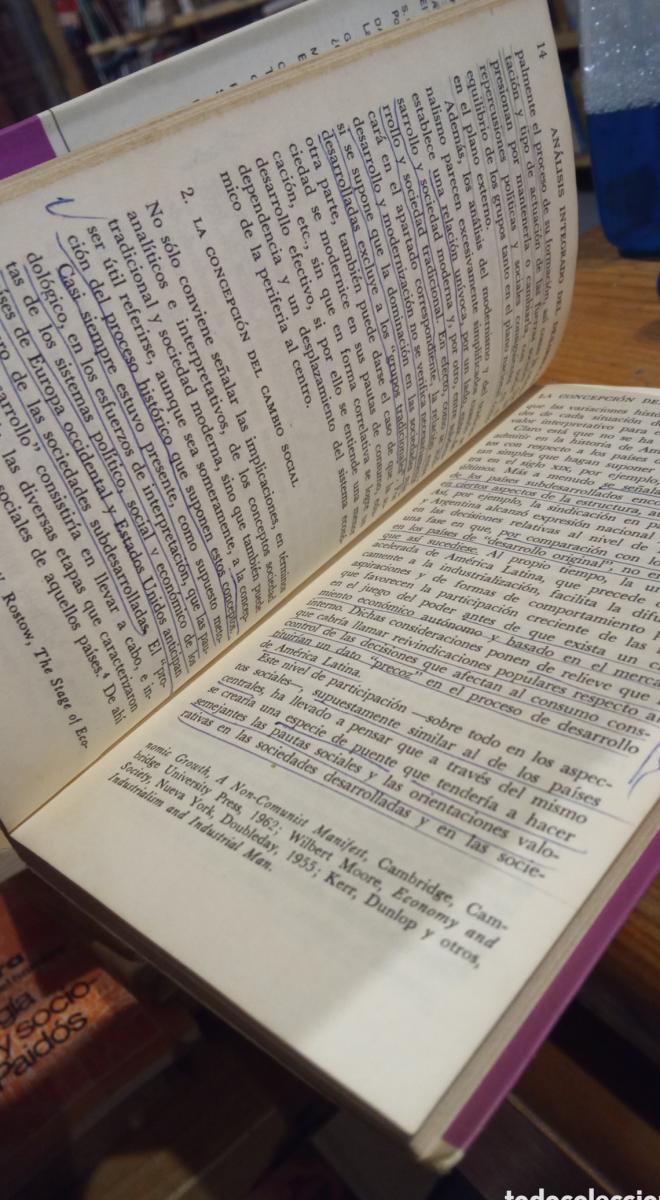 14
ANÁLISIS INTEGRADO DEL
palmente el proceso de su formación,
tación y tipo de actuación de las
presionan por mantenerla o cambiarla,
repercusiones políticas y sociales
equilibrio de los grupos tanto en el
en el plano externo.
Además, los análisis del modernismo y del
nalismo parecen excesivamente
establece una relación unívoca, por un lado,
sarrollo y sociedad moderna y, por otro, entre
rrollo y sociedad tradicional. En efecto, como se
cará en el apartado correspondiente, la
desarrollo y modernización no se verifica
si se supone que la dominación en las sociedades
desarrolladas excluye a los "grupos tradicionales".
otra parte, también puede darse el caso de que la
ciedad se modernice en sus pautas de consumo,
cación, etc., sin que en forma correlativa se
desarrollo efectivo, si por ello se entiende una menor
dependencia y un desplazamiento del sistema econó-
mico de la periferia al centro.
2. LA CONCEPCIÓN DEL CAMBIO SOCIAL
No sólo conviene señalar las implicaciones, en términos
analíticos e interpretativos, de los conceptos sociedad
tradicional y sociedad moderna, sino que también puede
ser útil referirse, aunque sea someramente, a la concep-
ción del proceso histórico que suponen estos conceptos.
Casi siempre estuvo presente, como supuesto meto-
dológico, en los esfuerzos de interpretación, que las pau-
tas de los sistemas político, social y económico de los
países de Europa occidental y Estados Unidos anticipan
de las sociedades subdesarrolladas. El "pro-
desarrollo" consistiría en llevar a cabo, e in-
las diversas etapas que caracterizaron
sociales de aquellos países.⁴ De ahí
Rostow, The Stage of Eco-
LA CONCEPCIÓN DE
que las variaciones
des de cada situación de
valor interpretativo
Claro está que no se ha
admitir en la historia de
te con respecto a los países
tan simples que hagan suponer
tra en el siglo XIX, por ejemplo,
últimos. Más a menudo se señala
de los países subdesarrollados
en ciertos aspectos de la estructura,
Así, por ejemplo, la sindicación en
y Argentina alcanzó expresión nacional
en las decisiones relativas al nivel de
una fase en que, por comparación con lo
en los países de "desarrollo original", no
que así sucediese. Al propio tiempo, la
acelerada de América Latina, que precede
camente a la industrialización, facilita la
aspiraciones y de formas de comportamiento
que favorecen la participación creciente de las
en el juego del poder antes de que exista un
miento económico autónomo y basado en el
interno. Dichas consideraciones ponen de relieve que
que cabría llamar reivindicaciones populares respecto al
control de las decisiones que afectan al consumo cons-
tituirían un dato "precoz" en el proceso de desarrollo
de América Latina.
Este nivel de participación —sobre todo en los aspec-
tos sociales—, supuestamente similar al de los países
centrales, ha llevado a pensar que a través del mismo
se crearía una especie de puente que tendería a hacer
semejantes las pautas sociales y las orientaciones valo-
rativas en las sociedades desarrolladas y en las socie-
nomic Growth, A Non-Comunist Manifest, Cambridge, Cam-
bridge University Press, 1962; Wilbert Moore, Economy and
Society, Nueva York, Doubleday, 1955; Kerr, Dunlop y otros,
Industrialism and Industrial Man.
y socio-
Paidós